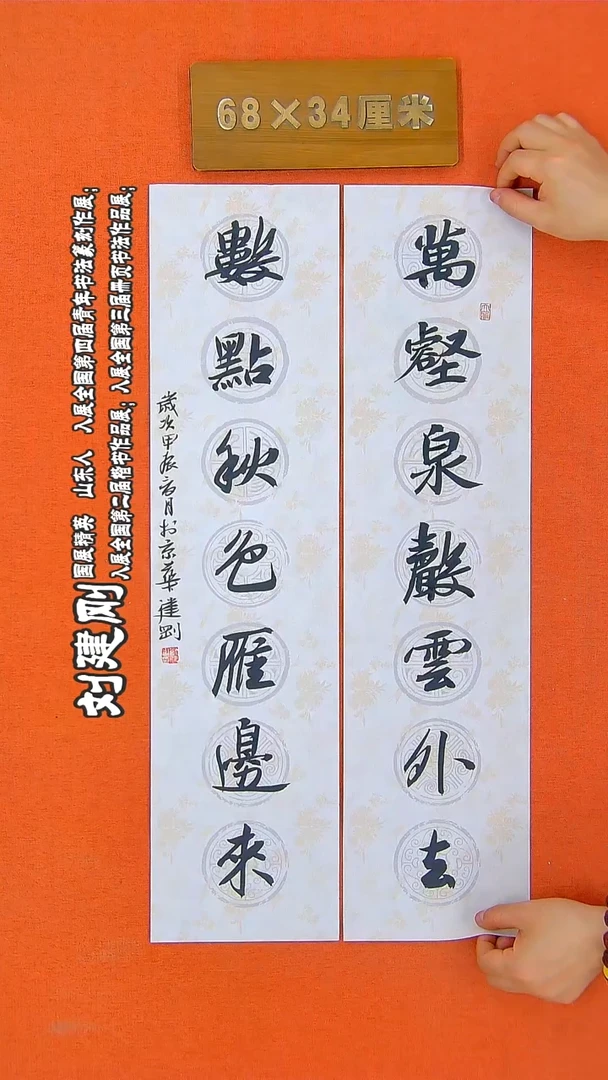 68×34厘米
萬壑泉聲雲外去
數點秋色雁邊來
歲次甲辰六月於京華 建剛
刘建刚
国展精英 山东人 入展全国第四届青年书法篆刻作展；
入展全国第二届楷书作品展；入展全国第三届册页书法作品展；